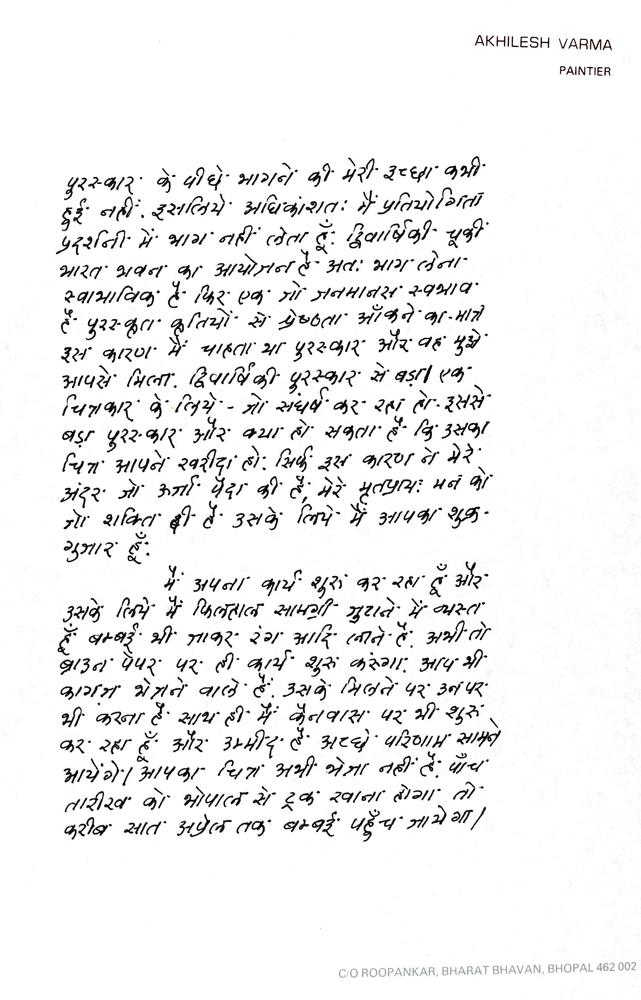 AKHILESH VARMA
PAINTIER
पुरस्कार के पीछे भागने की मेरी इच्छा कभी
हुई नहीं. इसलिये अधिकांशतः मैं प्रतियोगिता
प्रदर्शनी में भाग नहीं लेता हूँ. द्विवार्षिकी चूकी
भारत भवन का आयोजन है अतः भाग लेना
स्वाभाविक है फिर एक जो जनमानस स्वभाव
है पुरस्कृत कृतियों से श्रेष्ठता आँकने का-मात्र
इस कारण मैं चाहता था पुरस्कार और वह मुझे
आपसे मिला. द्विवार्षिकी पुरस्कार से बड़ा। एक
चित्रकार के लिये - जो संघर्ष कर रहा हो. इससे
बड़ा पुरस्कार और क्या हो सकता है कि उसका
चित्र आपने खरीदा हो. सिर्फ इस कारण ने मेरे
अंदर जो ऊर्जा पैदा की है, मेरे मृतप्रायः मन को
जो शक्ति दी है उसके लिये मैं आपका शुक्र-
गुजार हूँ.
मैं अपना कार्य शुरू कर रहा हूँ और
उसके लिये मैं फिलहाल सामग्री जुटाने में व्यस्त
हूँ बम्बई भी जाकर रंग आदि लाने है. अभी तो
ब्राउन पेपर पर ही कार्य शुरू करुंगा. आप भी
कागज भेजने वाले हैं. उसके मिलने पर उनपर
भी करना है साथ ही मैं कैनवास पर भी शुरू
कर रहा हूँ और उम्मीद है अच्छे परिणाम सामने
आयेंगे। आपका चित्र अभी भेजा नहीं है. पाँच
तारीख को भोपाल से ट्रक रवाना होगा तो
करीब सात अप्रेल तक बम्बई पहुँच जायेगा।
C/O ROOPANKAR, BHARAT BHAVAN, BHOPAL 462 002